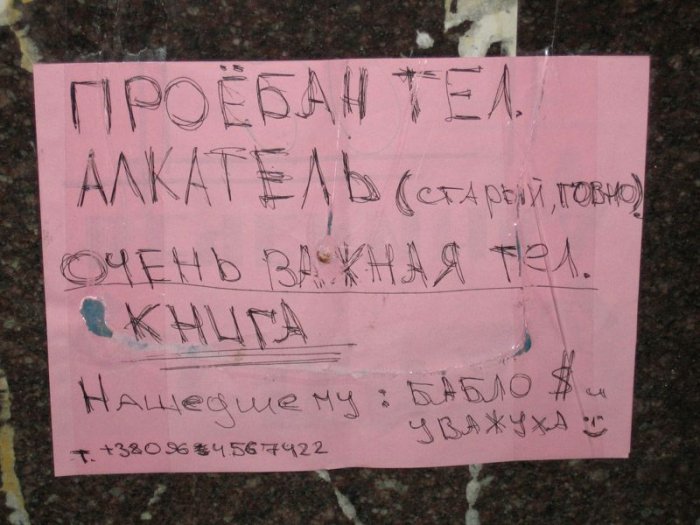 ПРОЁБАН ТЕЛ.
АЛКАТЕЛЬ (СТАРЫЙ, ГОВНО)
ОЧЕНЬ ВАЖНАЯ ТЕЛ.
КНИГА
Нашедшему: БАБЛО $ и
УВАЖУХА :)
т. +380964567422